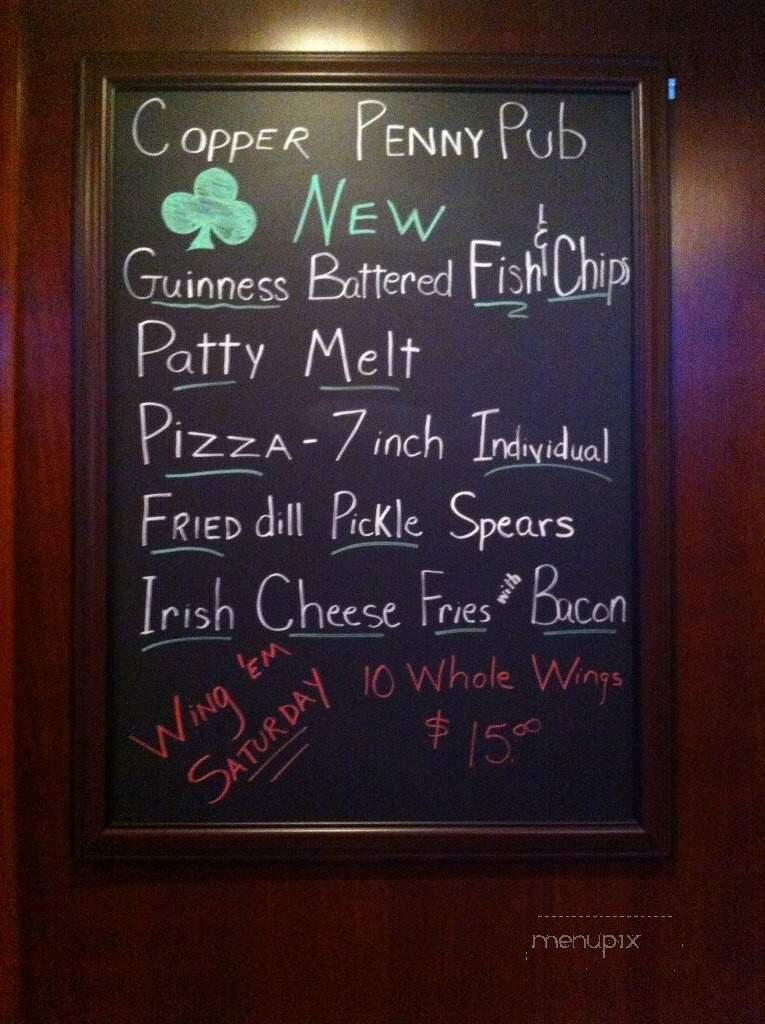 Copper Penny Pub
New
Guinness Battered Fish & Chips
Patty Melt
Pizza - 7 inch Individual
Fried dill Pickle Spears
Irish Cheese Fries with Bacon
Wing 'em
Saturday
10 Whole Wings
$ 15.00
menupix